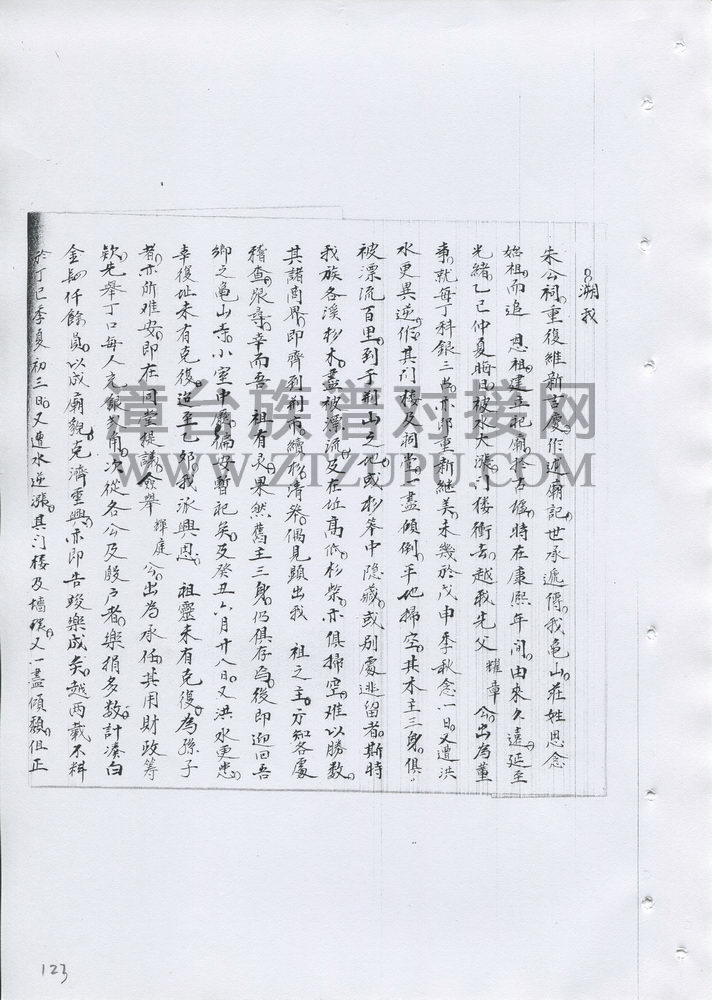 溯我
朱公祠重復維新吉慶作述廟記世承遞傳我亀山莊姓思念
始祖而追 恩祖建立祀廟於古堰時在康熙年間由來久遠延至
光緒乙巳仲夏晦日被水大漲门楼衝去越我先父 耀章 公出為董
事就每丁科銀三 亦即重新継美未幾於戊申季秋念一日又遭洪
水更異逆作其门楼及祠堂一盡傾倒平地掃空其木主三身俱
被漂流百里到于荆山之地或杉箄中隐藏或别處逃留者斯時
我族各溪杉木盡被漂流及在近高低杉柴亦俱掃空难以勝数
其諸商界即齊到荆市續杉清發偶見顕出我 祖之主方知各處
稽查限尋幸而吾 祖有灵果然舊主三身仍俱存焉後即迎回吾
鄉之亀山寺小室中廳偏安暫祀矣及癸丑六月廿八日又洪水更患
幸復址未有克復迨至乙卯我泳興恩 祖靈未有克復為孫子
者亦所难安即在同堂提議僉舉 輝庭 公出為承任其用財政籌
欸先舉丁口每人充銀 角次從各公及殷户者樂捐多数計湊白
金 仟餘員以成廟貌克濟重興亦即告竣樂成矣越两載不料
於丁巳季夏初三日又遭水逆漲其门楼及墻 又一盡傾頽但正
123
章台族谱对接网
WWW.ZTZUPU.COM